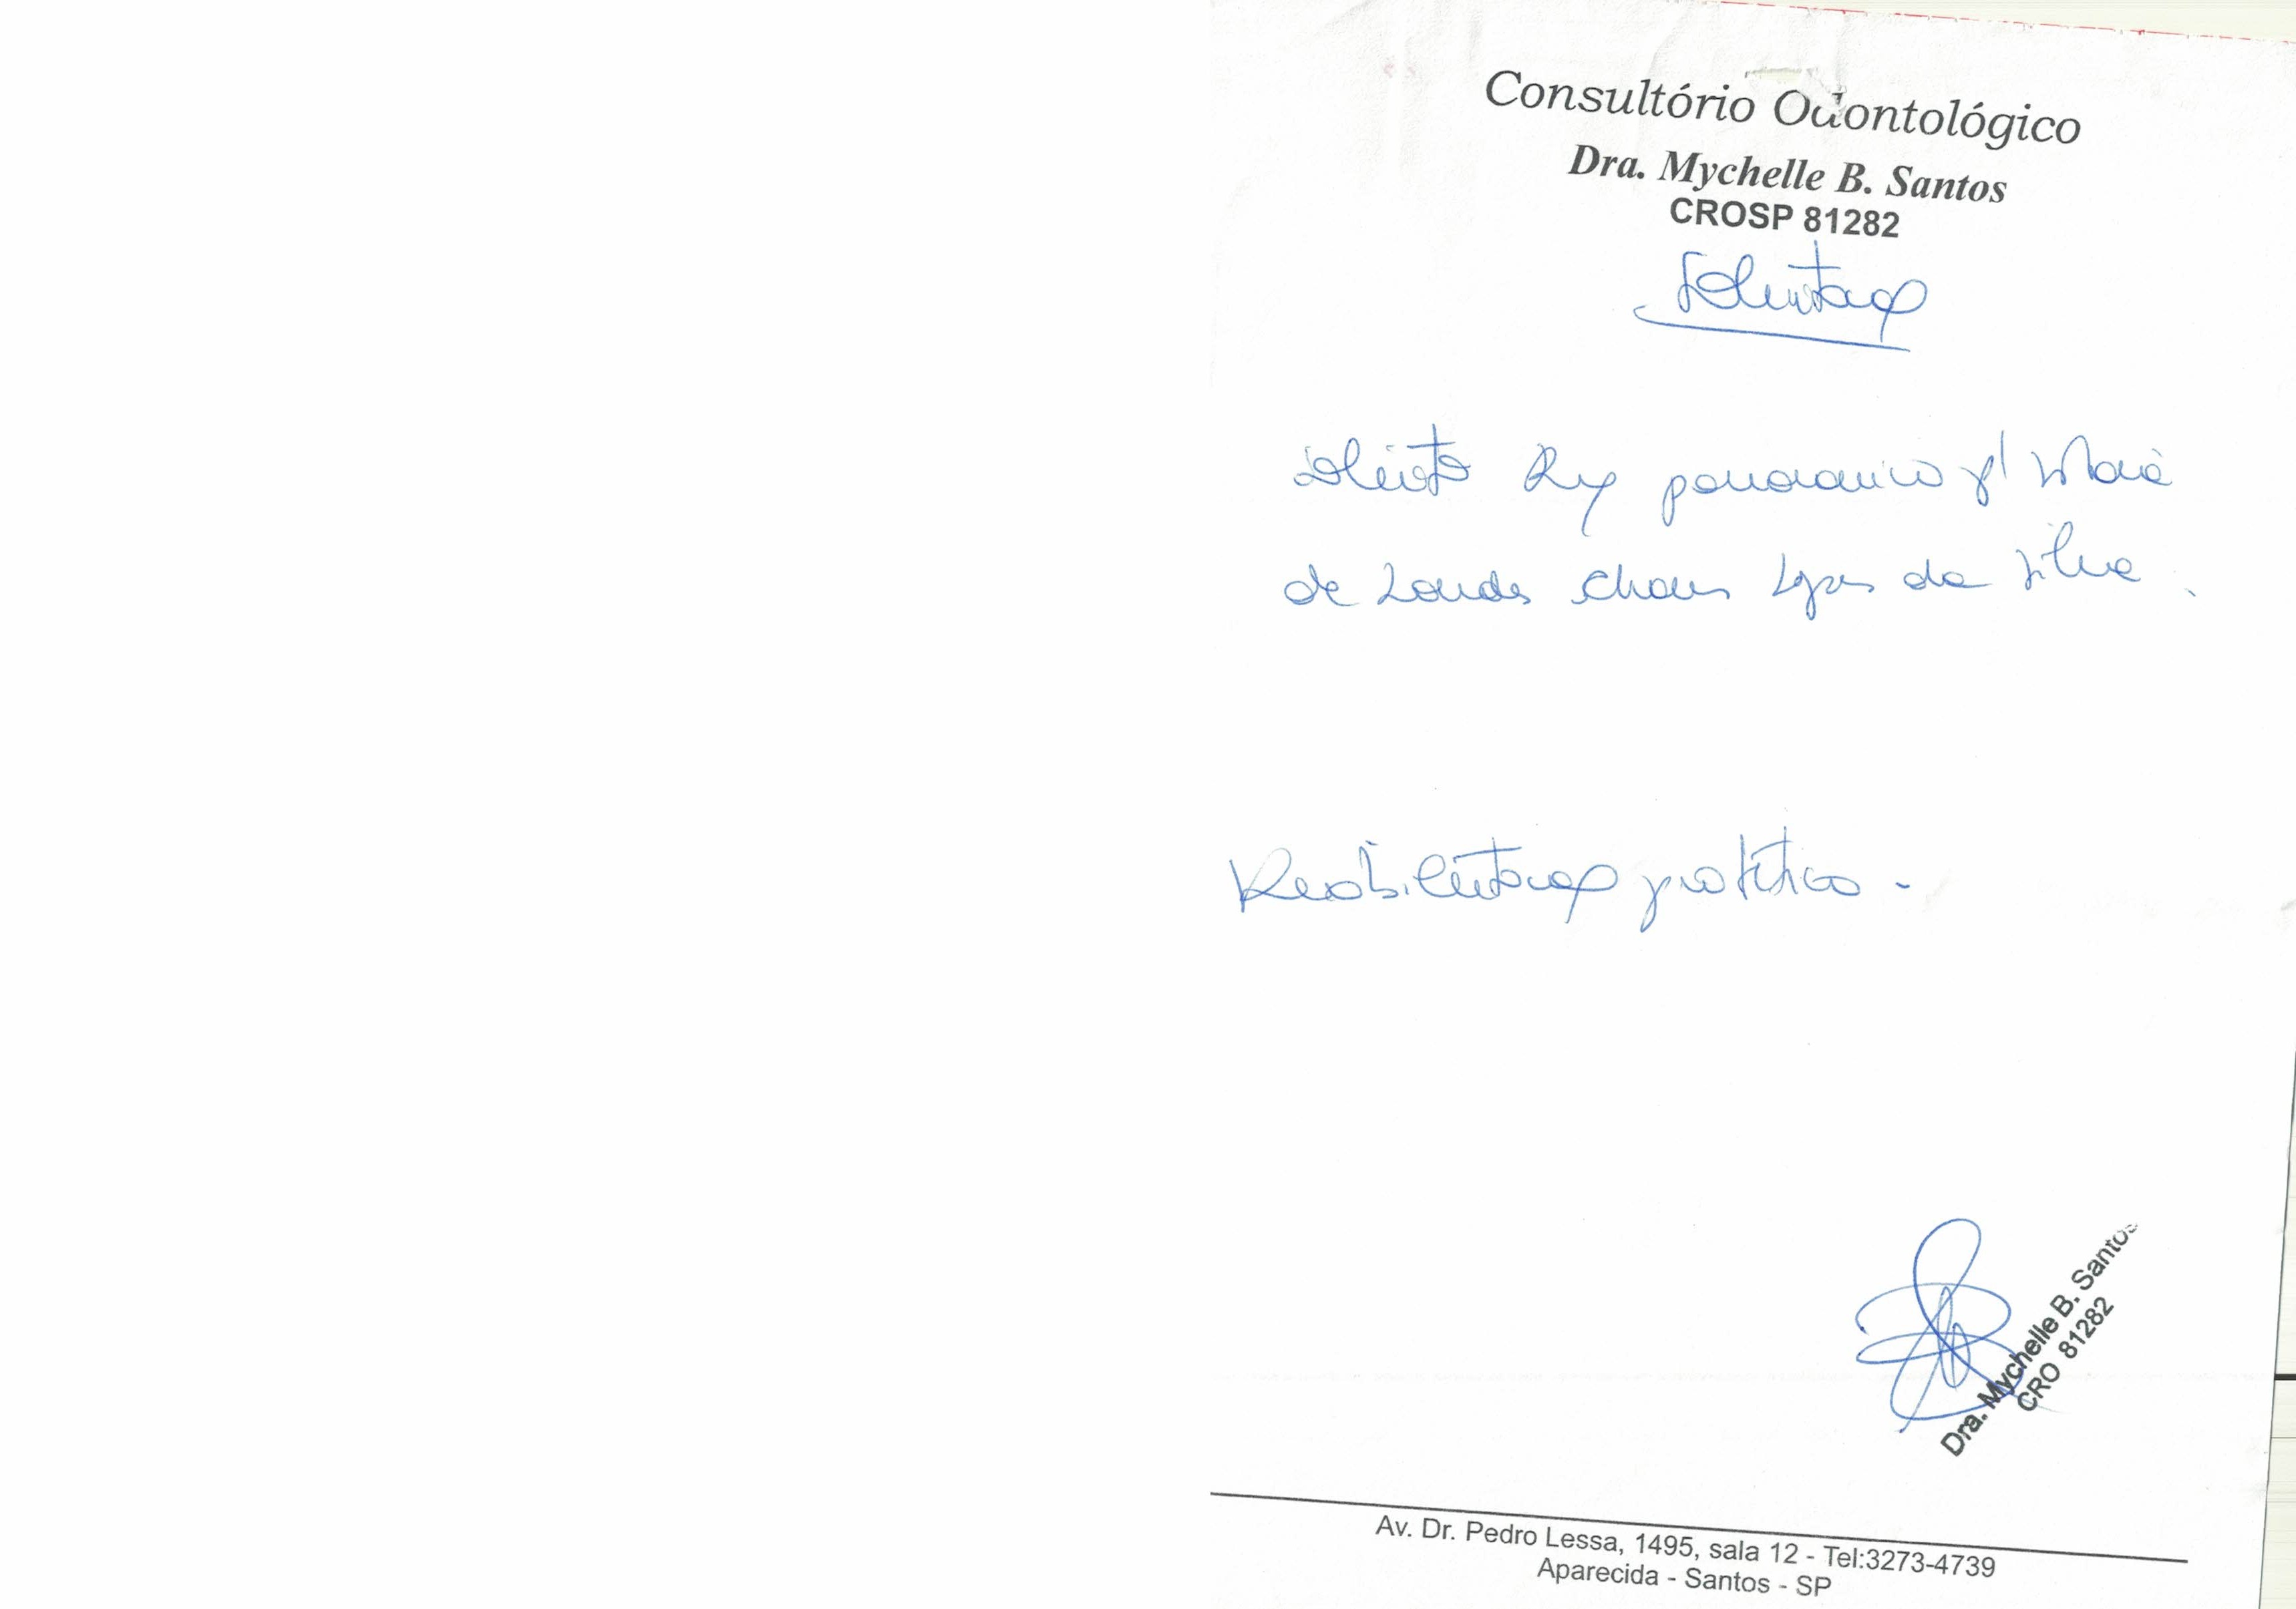 Consultório Odontológico
Dra. Mychelle B. Santos
CROSP 81282
Solicitação
Solicito Rx panoramico p/ Maria
de Lourdes Chaves Lopes da Silva.
Reabilitação protética.
Dra. Mychelle B. Santos
CRO 81282
Av. Dr. Pedro Lessa, 1495, sala 12 - Tel:3273-4739
Aparecida - Santos - SP